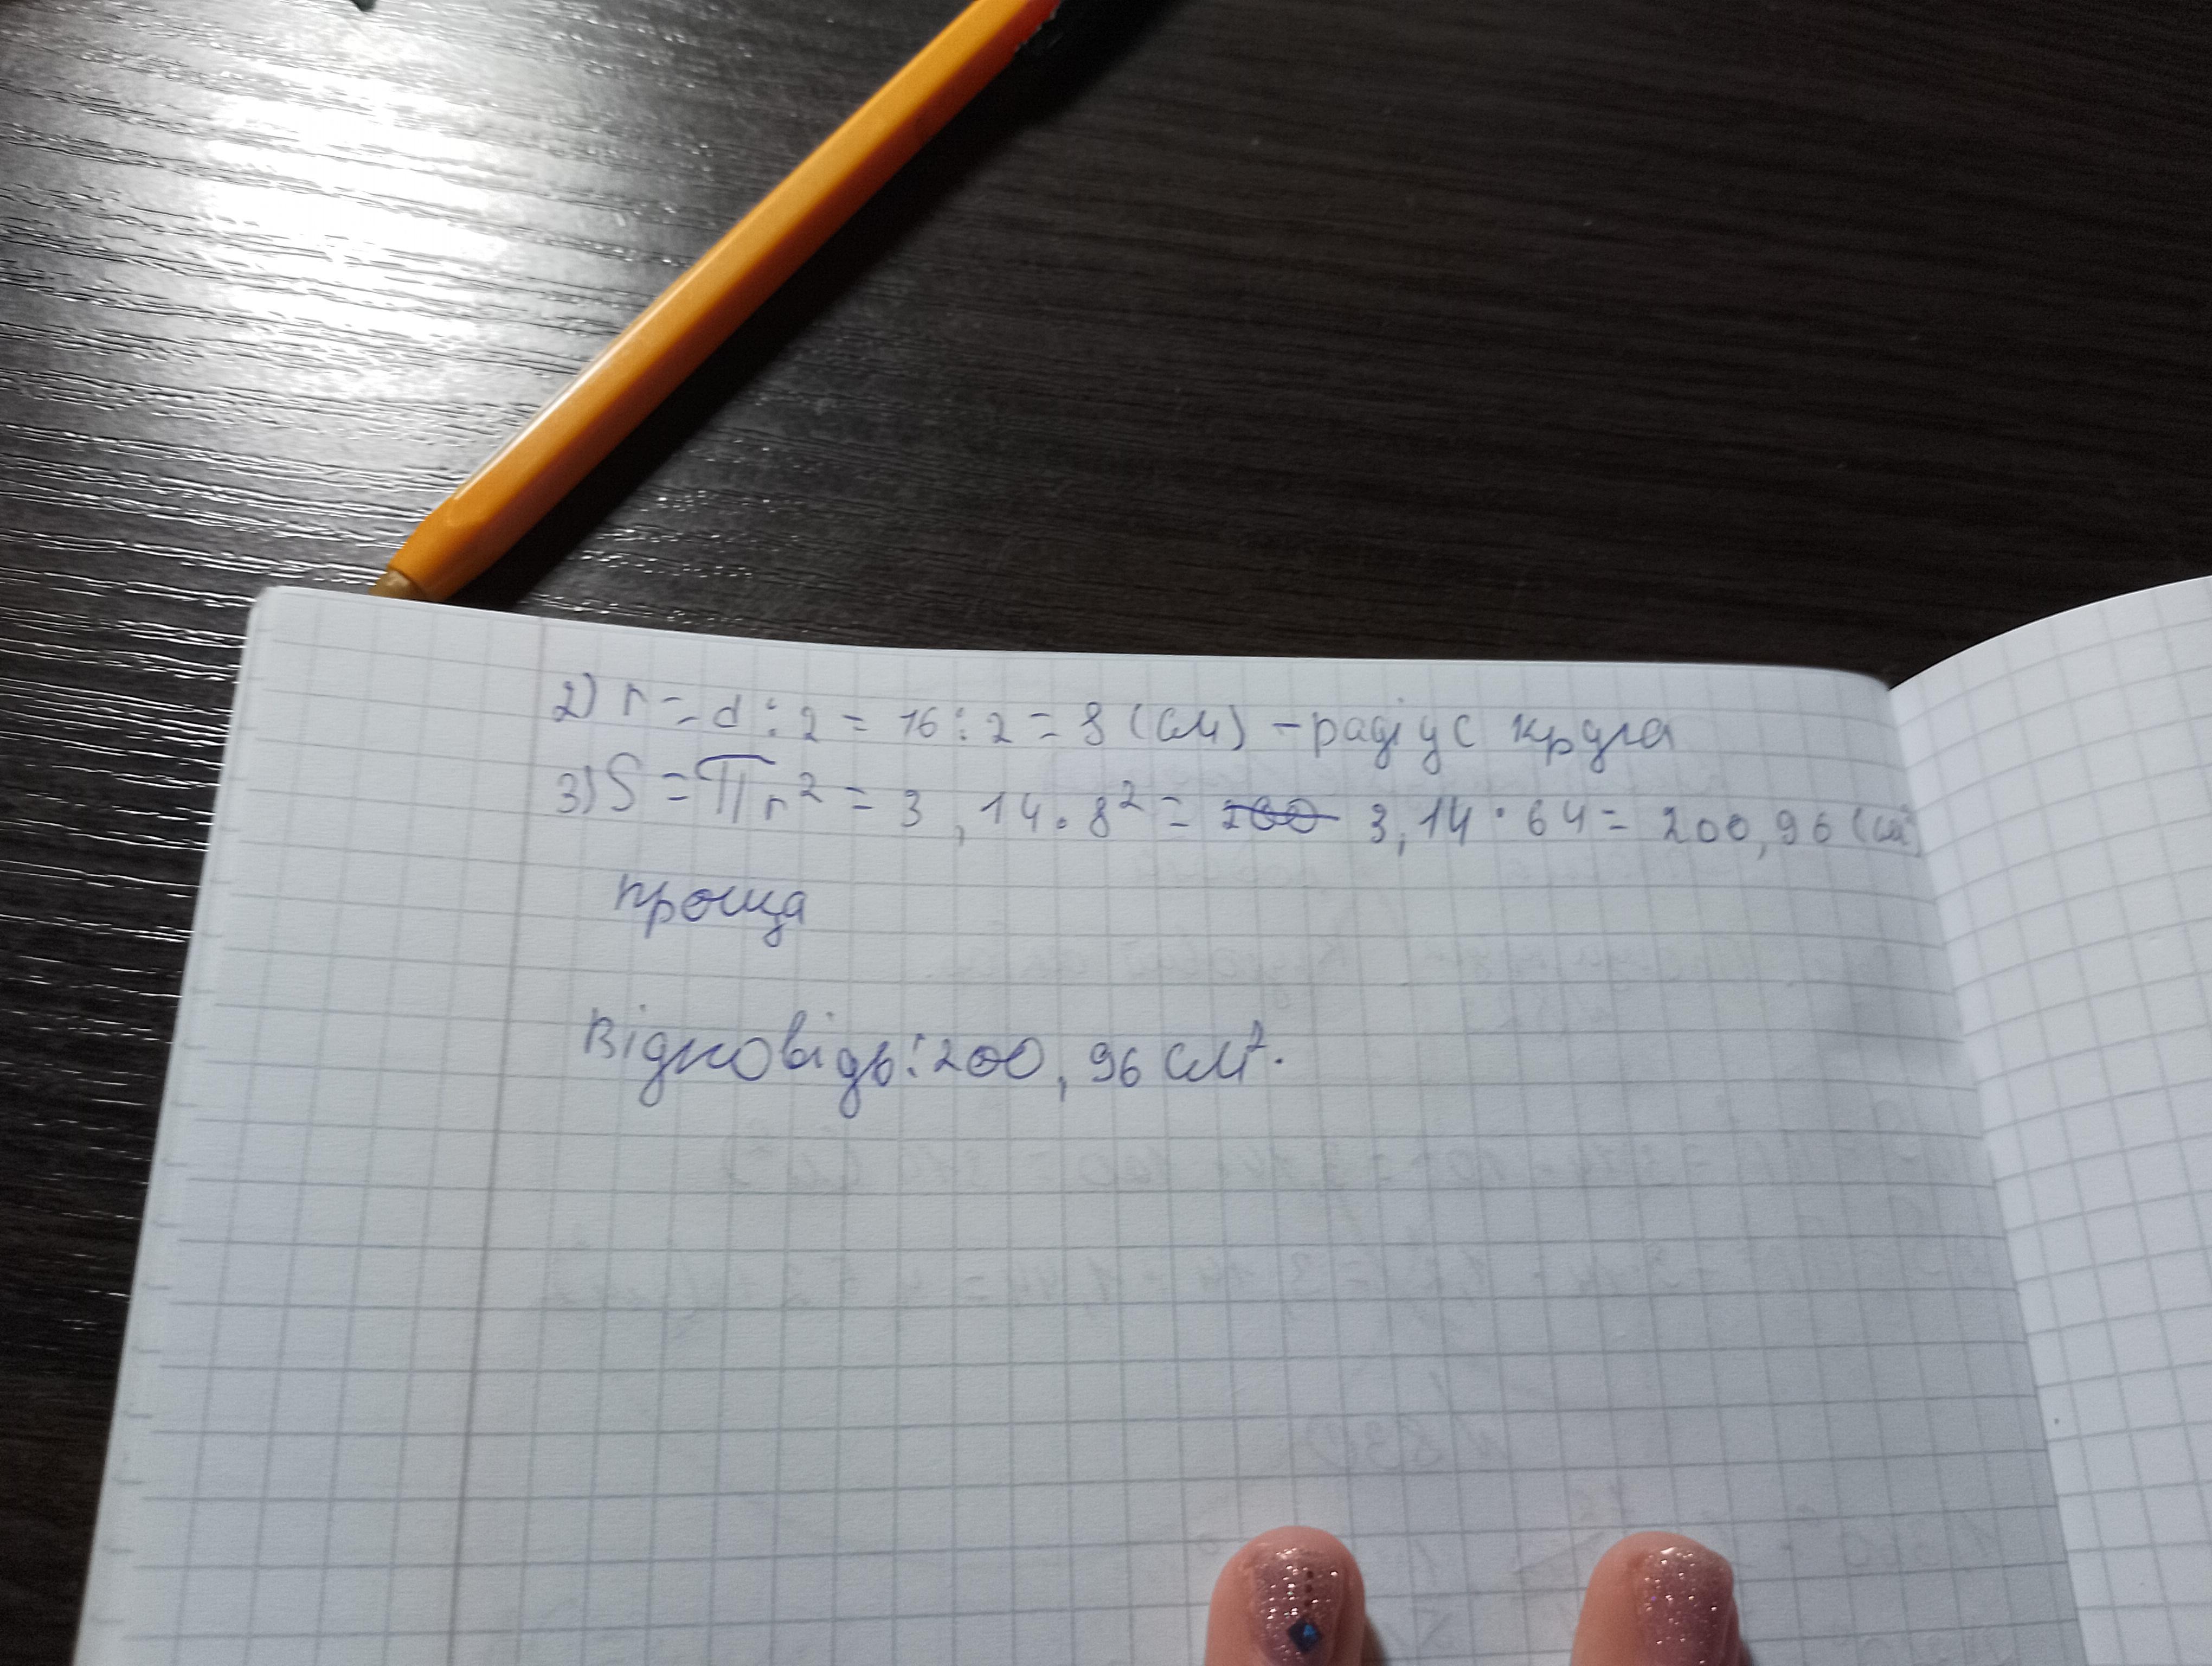 2) r = d : 2 = 16 : 2 = 8 (см) – радіус круга
3) S = πr² = 3,14 · 8² = 200 3,14 · 64 = 200,96 (см²)
проща
Відповідь: 200,96 см².